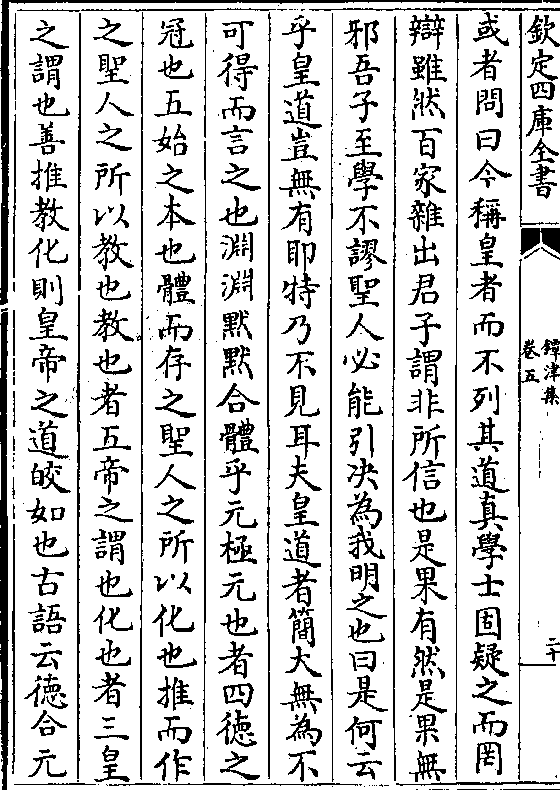 欽定四庫全書
鐔津集
卷五
二十
或者問曰今稱皇者而不列其道真學士固疑之而罔
辯雖然百家雜出君子謂非所信也是果有然是果無
邪吾子至學不謬聖人必能引决為我明之也曰是何云
乎皇道豈無有即特乃不見耳夫皇道者簡大無為不
可得而言之也淵淵默默合體乎元極元也者四德之
冠也五始之本也體而存之聖人之所以化也推而作
之聖人之所以教也教也者五帝之謂也化也者三皇
之謂也善推教化則皇帝之道皎如也古語云德合元